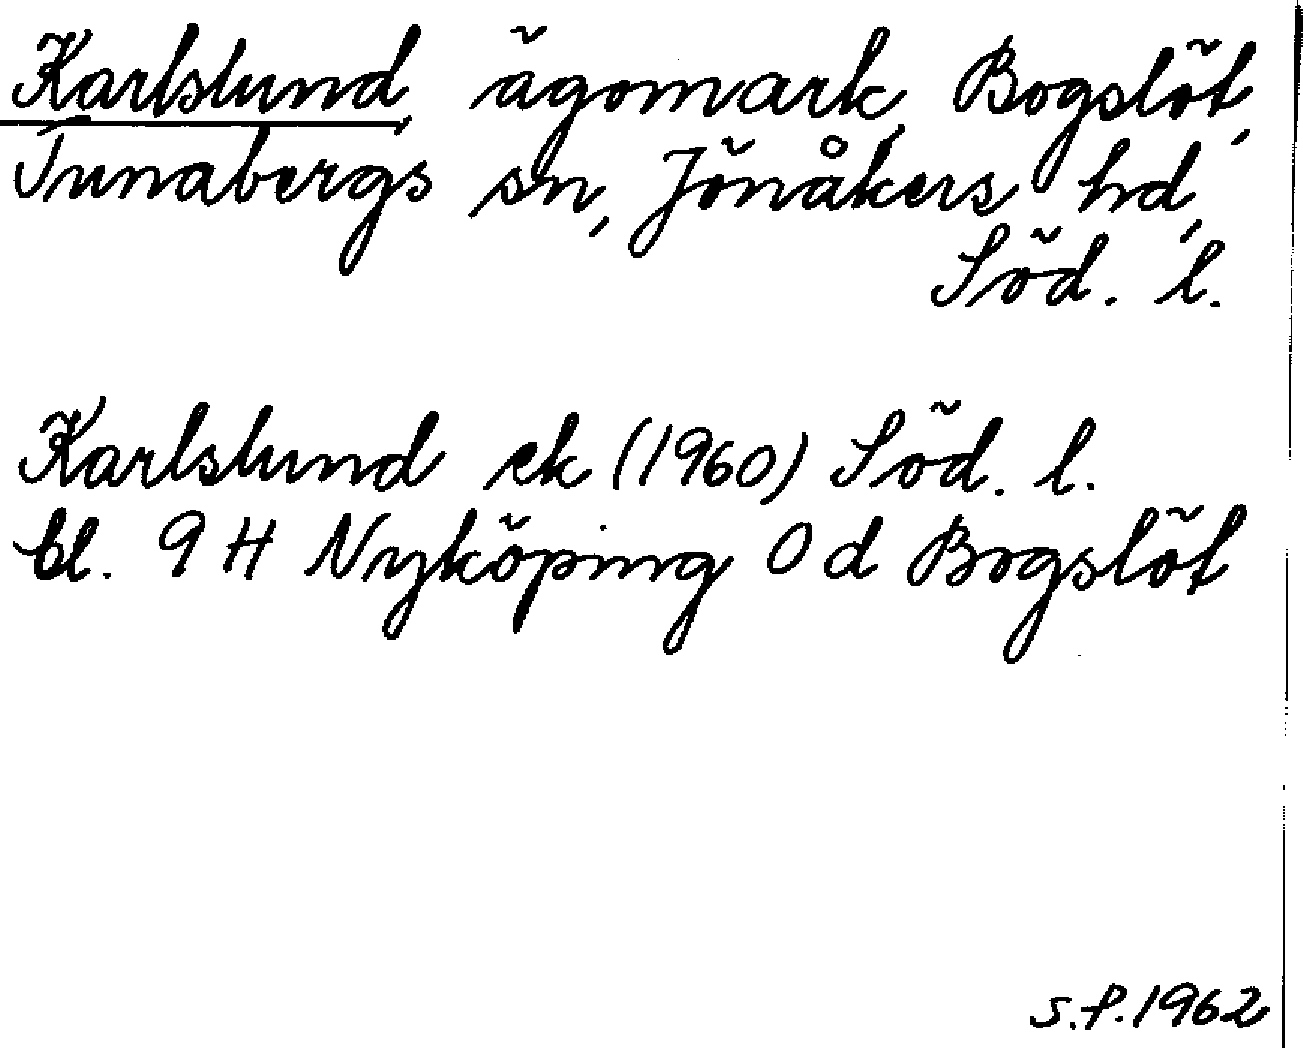 Karlslund, ägomark, Bogslöt,
Tunabergs sn, Jönåkers hd,
Söd. l.
Karlslund ek (1960) Söd. l.
bl. 9 H Nyköping 0 d Bogslöt
S.f. 1962